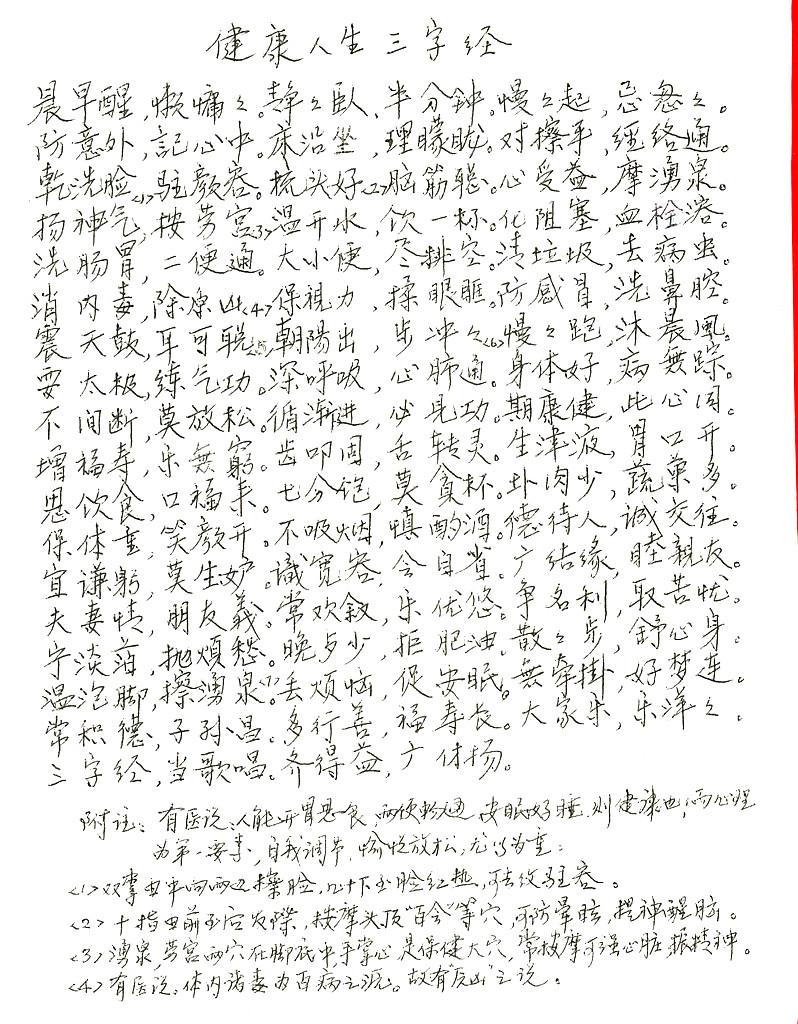 健康人生三字经
晨早醒,懒慵々。静々卧,半分钟。慢々起,忌怱々。
防意外,記心中。床沿坐,理矇眬。对擦手,经络通。
乾洗脸<1>,驻颜容。梳头好<2>,脑筋聪。心受益,摩湧泉。
扬神气,按劳宫<3>。温开水,饮一杯。化阻塞,血栓溶。
洗肠胃,二便通。大小便,尽排空。清垃圾,去病虫。
消内毒,除原凶<4>。保視力,揉眼眶。防感冒,洗鼻腔。
震天鼓,耳可聪<5>。朝陽出,步冲々<6>。慢々跑,沐晨風。
耍太极,练气功。深呼吸,心肺通。身体好,病無踪。
不间断,莫放松。循渐进,必見功。期康健,此心同。
增福寿,乐無窮。齿叩固,舌转灵。生津液,胃口开。
思饮食,口福来。七分饱,莫貪杯。卟肉少,蔬菜多。
保体重,笑颜开。不吸烟,慎酌酒。德待人,诚交往。
宜谦躬,莫生妒。識宽容,会自省。广结缘,睦親友。
夫妻情,朋友義。常欢叙,乐优悠。争名利,取苦忧。
宁淡薄,抛煩愁。晚歺少,拒肥油。散々步,舒心身。
温泡脚,擦湧泉<7>。丢烦恼,促安眠。無牵掛,好梦连。
常积德,子孙昌。多行善,福寿长。大家乐,乐洋々。
三字经,当歌唱。齐得益,广传扬。
附注:有医说:人能开胃思食,两便畅通,安眠好睡,则健康也,而心理
为第一要事,自我调节,愉悦放松,尤当为重:
<1>双掌由中向两边擦脸,几十下至脸红热,可去纹驻容。
<2>十指由前至后发際,按摩头顶"百会"等穴,可防晕眩,提神醒脑。
<3>湧泉,劳宫两穴在脚底中手掌心是保健大穴,常按摩可强心脏,振精神。
<4>有医说:体内诸毒为百病之源。故有"原凶"之说。